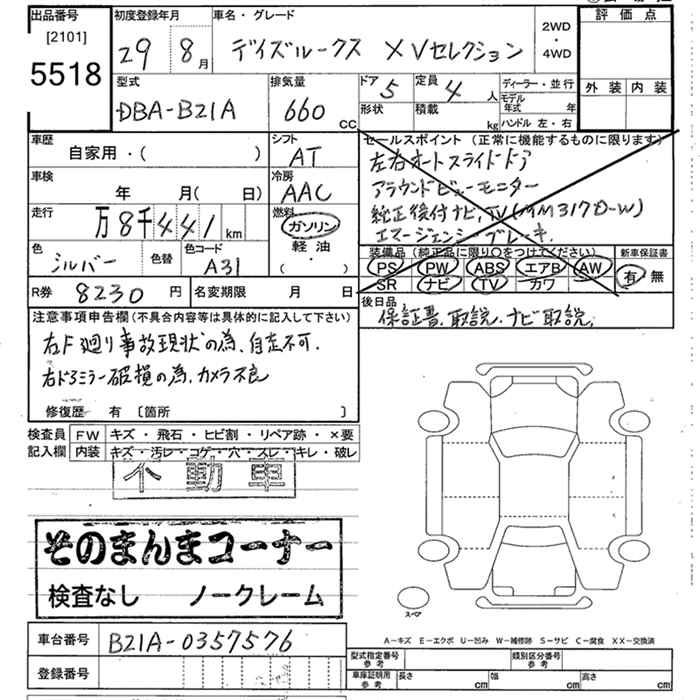 出品番号
[2101]
5518
初度登録年月
29 8月
車名・グレード
デイズルークス XVセレクション
2WD
・
4WD
評価点
外装 内装
型式
DBA-B21A
排気量
660 cc
ドア 5
定員 4 人
形状
積載 kg
ディーラー・並行
モデル年式 年
ハンドル 左・右
車歴
自家用・( )
シフト
AT
車検
年 月( 日)
冷房
AAC
走行
万8千441km
燃料
ガソリン
軽油
・( )
色
シルバー
色替
色コード
A31
R券 8230円
名変期限 月 日
セールスポイント(正常に機能するものに限ります)
左右オートスライドドア
アラウンドビューモニター
純正後付ナビ,TV(MM317D-W)
エマージェンシーブレーキ.
装備品(純正品に限り○をつけてください)
PS PW ABS エアB AW
SR ナビ TV カワ
新車保証書
有・無
後日品
保証書.取説.ナビ取説.
注意事項申告欄(不具合内容等は具体的に記入して下さい)
右F廻り事故現状の為、自走不可.
右ドアミラー破損の為、カメラ不良
修復歴 有 [箇所 ]
検査員記入欄
FW キズ・飛石・ヒビ割・リペア跡・×要
内装 キズ・汚レ・コゲ・穴・スレ・キレ・破レ
不動車
そのまんまコーナー
検査なし ノークレーム
車台番号 B21A-0357576
登録番号
スペア
A-キズ E-エクボ U-凹み W-補修跡 S-サビ C-腐食 XX-交換済
型式指定番号
参考
類別区分番号
参考
車庫証明用
参考
長さ cm
幅 cm
高さ cm